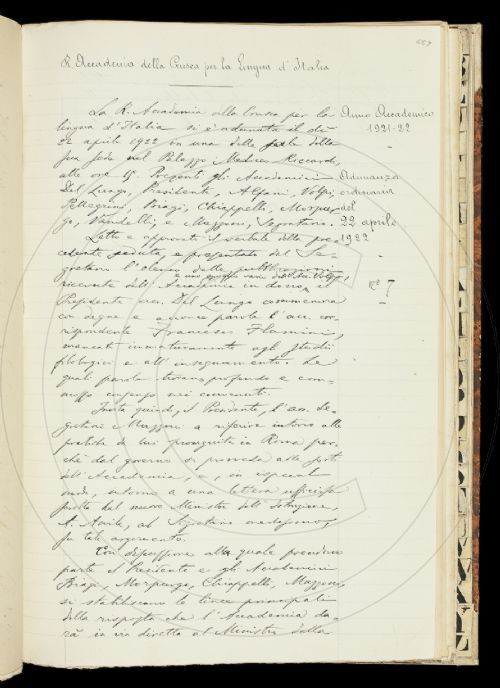 R. Accademia della Crusca per la Lingua d'Italia
La R. Accademia della Crusca per la
lingua d'Italia si è adunata il dì
22 aprile 1922 in una delle sale della
sua sede nel Palazzo Medici Riccardi,
alle ore 15. Presenti gli Accademici
Del Lungo, Presidente, Alfani, Volpi,
Pellegrini, Biagi, Chiappelli, Morpur-
go, Vandelli e Mazzoni, Segretario.
Letto e approvato il verbale della pre-
cedente seduta, e presentato dal Se-
gretario l'elenco delle pubblicazioni
ricevute dall'Accademia in dono, il
Presidente acc. Del Lungo commemora
con degne e parole l'acc. cor-
rispondente Francesco Flamini,
mancato immaturamente agli studii
filologici e all'insegnamento. Le
quali parole trovano profondo e com-
mosso consenso nei convenuti.
Invita quindi, il Presidente, l'acc. Se-
gretario Mazzoni a riferire intorno alle
pratiche da lui proseguite in Roma per-
chè dal governo si provveda alle sorti
dell'Accademia, e, in special
modo, intorno a una lettera ufficiale
scritta dal nuovo Ministro dell'Istruzione,
A. Anile, al Segretario medesimo
su tale argomento.
Con discussione alla quale prendono
parte il Presidente e gli Accademici
Biagi, Morpurgo, Chiappelli, Mazzoni,
si stabiliscono le linee principali
della risposta che l'Accademia da-
rà in via diretta al Ministro della
Anno Accademico
1921-22
Adunanza
ordinaria
del
22 aprile
1922
n° 7